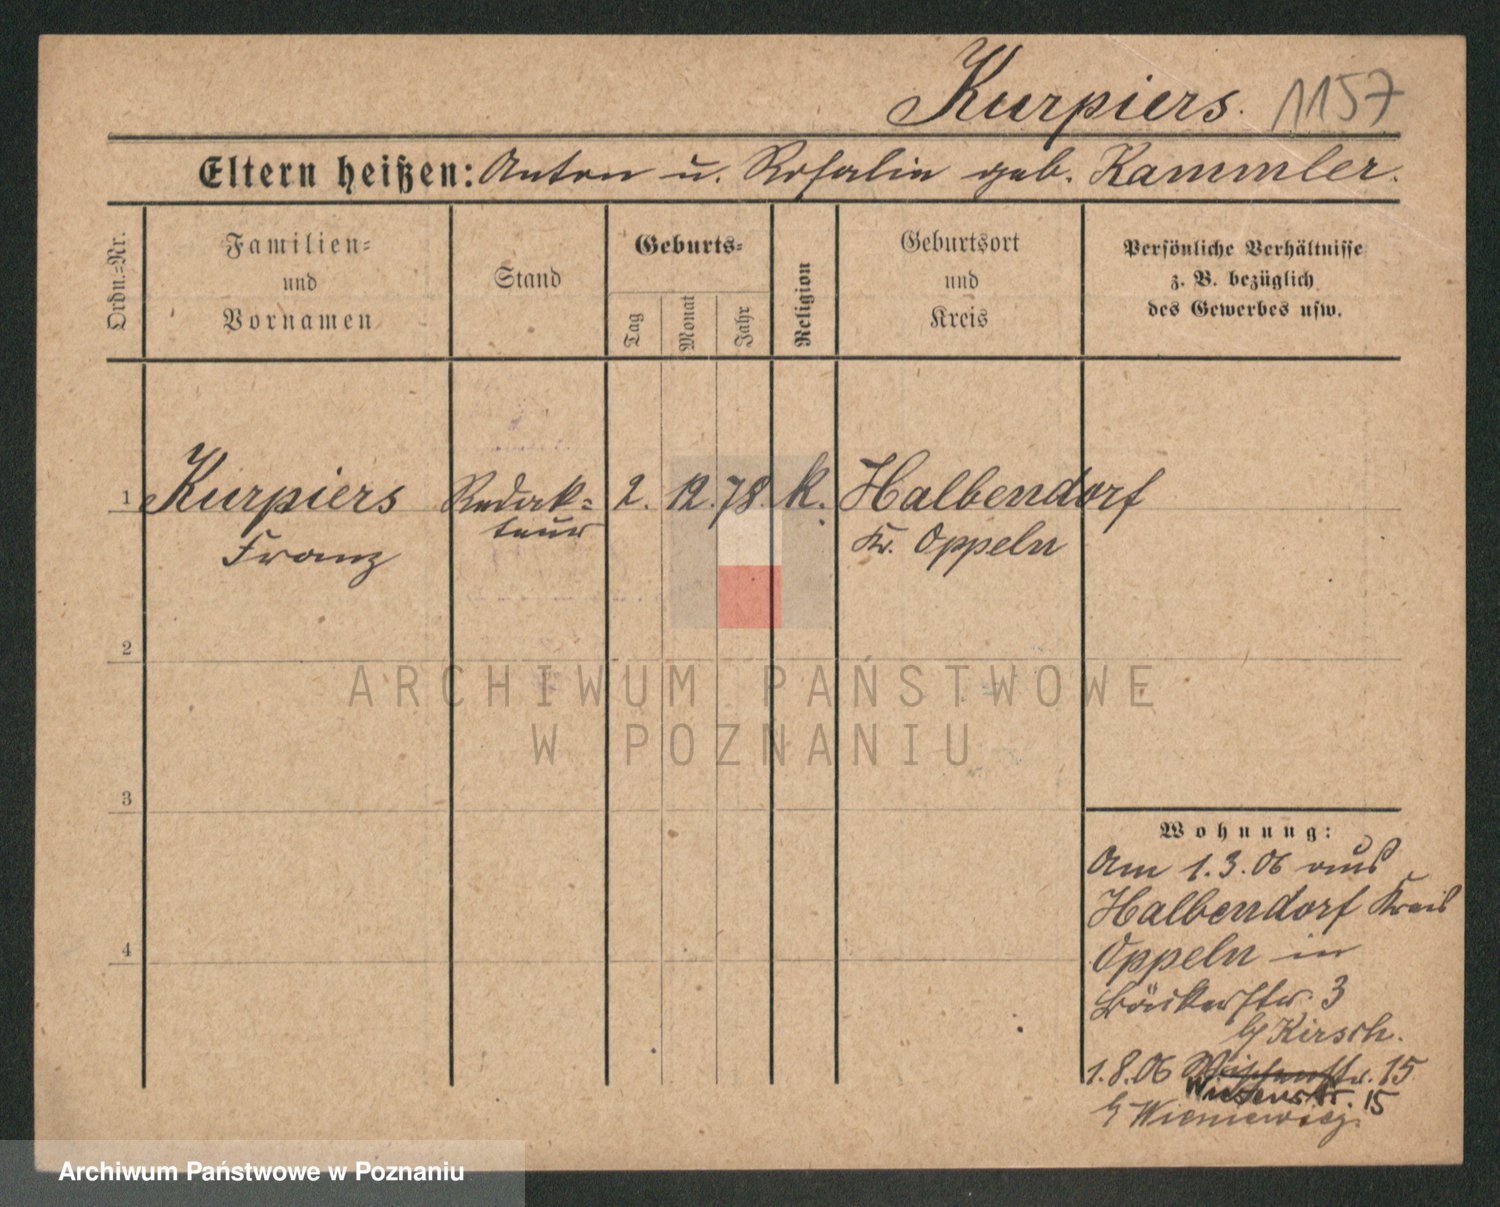 Kurpiers. 1157
Eltern heißen: Anton u. Rosalie geb. Kammler.
Ordn.-Nr.
Familien-
und
Vornamen
Stand
Geburts-
Tag
Monat
Jahr
Religion
Geburtsort
und
Kreis
Persönliche Verhältnisse
z. B. bezüglich
des Gewerbes usw.
1 Kurpiers Redak- 2. 12. 78. k. Halbendorf
Franz teur Kr. Oppeln
2
ARCHIWUM PAŃSTWOWE
W POZNANIU
3
Wohnung:
Am 1.3.06 aus
Halbendorf Kreis
4
Oppeln in
Bäckerstr. 3
b/ Kirsch.
1.8.06 Wiesenstr. 15
Wiesenstr. 15
b/ Wieniewicz.
Archiwum Państwowe w Poznaniu